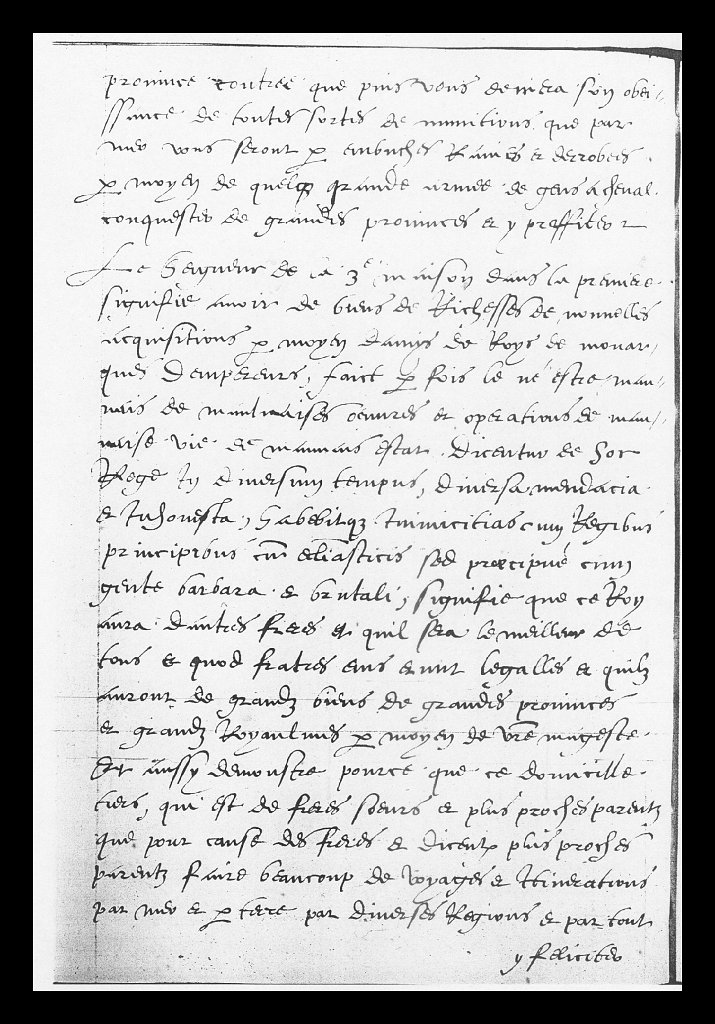 prouince contree que puis vous donnera son obei-
ssance de toutes sortes de munitions que par
mer vous seront p embuches Rauies et derrobees
p moyen de quelq grande armee de gens a cheval
conquester de grandes prouinces et y proffiter
Le Seigneur de la 3e maison dans la premiere
signifie auoir de biens de Richesses de nouuelles
acquisitions p moyen damys de Roys de monar-
ques Dempereurs, faict p fois le né estre mau-
uais de maulvaises oeuures et operations de mau-
uaise vie de mauuais estat. Dicentur de hoc
Rege In diuersum tempus, diuersa mendacia
et Inhonesta, habebitqz Inimicitias cum Regibus
principibus cum eccliasticis sed praecipué cum
gente barbara et brutali, signifie que ce Roy
aura dautres freres et quil sera le meilleur de
tous et quod fratres eius erunt legalles et quilz
auront de grandz biens de grandes prouinces
et grandz Royaulmes p moyen de vre mageste
Et aussy demonstre pource que ce domicille
tiers, qui est de freres soeurs et plus proches parentz
que pour cause des freres et plus proches
parentz faire beaucoup de voyages et Itinerations
par mer et p terre par diuerses Regions et par tout
y feliciter